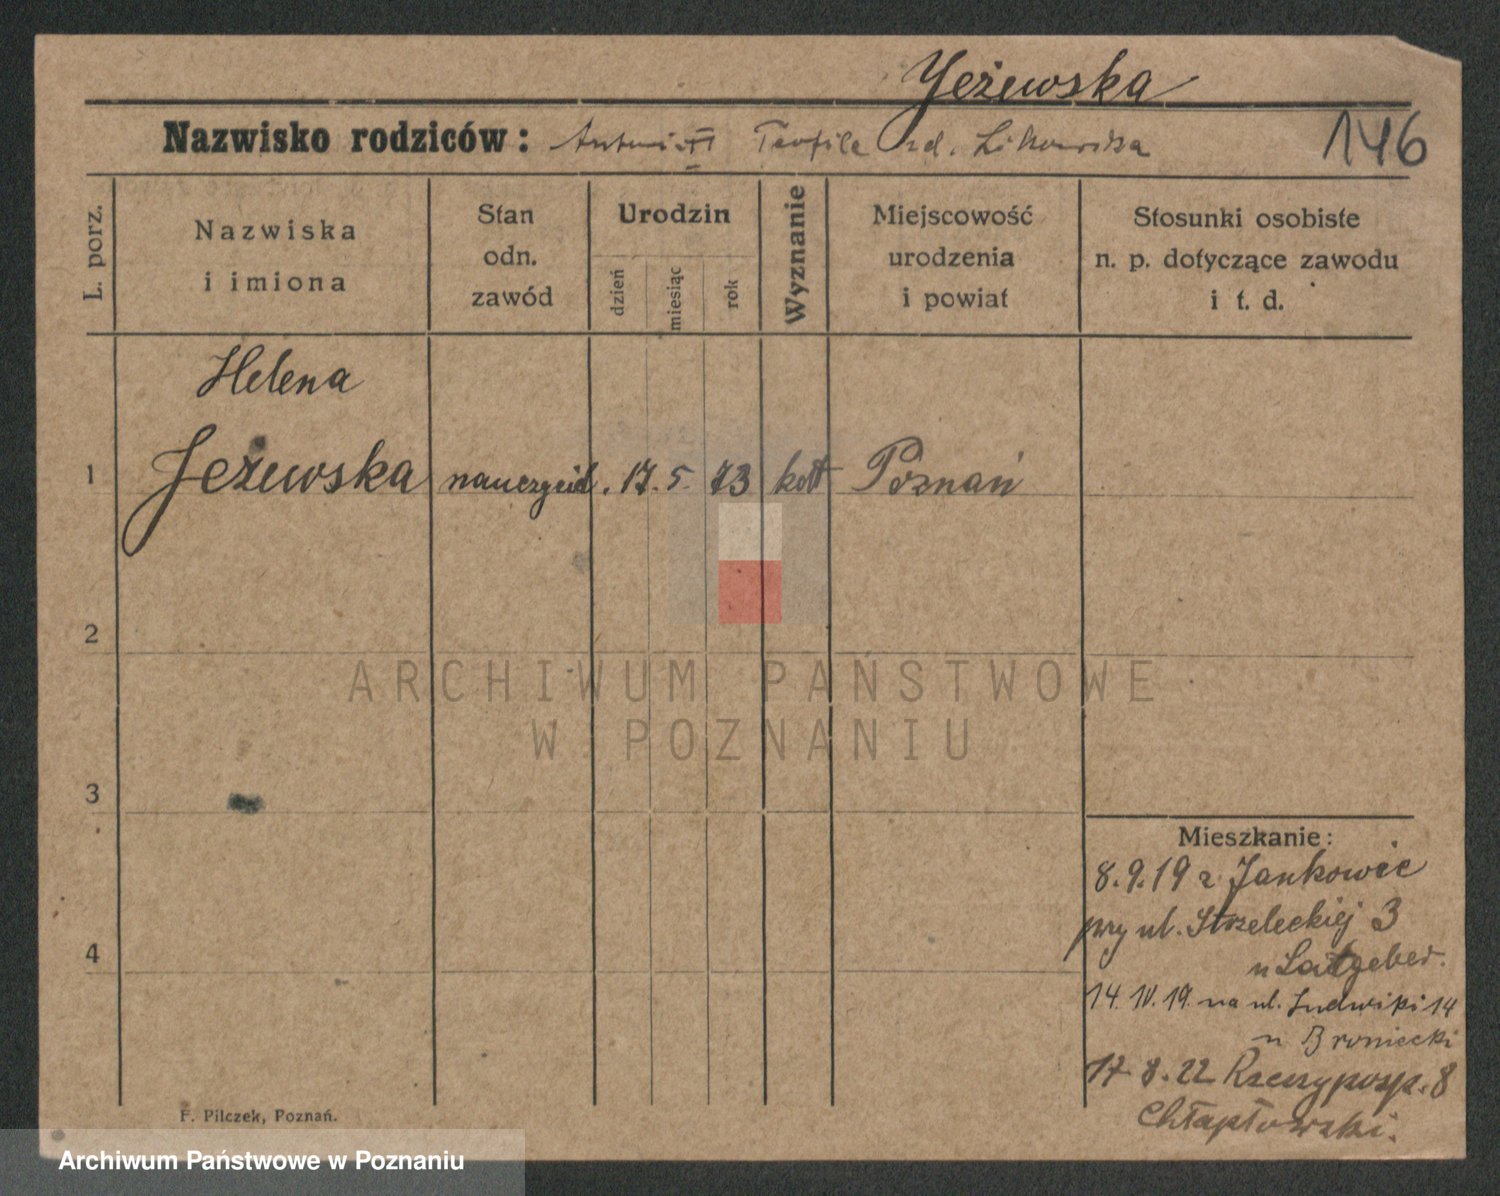 Jeżewska
Nazwisko rodziców: Antoni Teofila zd. Likowska
146
L. porz.
Nazwiska
i imiona
Stan
odn.
zawód
Urodzin
dzień
miesiąc
rok
Wyznanie
Miejscowość
urodzenia
i powiat
Stosunki osobiste
n. p. dotyczące zawodu
i t. d.
Helena
1 Jeżewska nauczyciel. 17. 5. 73 kat Poznań
2
ARCHIWUM PAŃSTWOWE
W POZNANIU
3
Mieszkanie:
8.9.19 z Jankowic
przy ul. Strzeleckiej 3
u Latgeber.
4
14. IV. 19. na ul. Ludwiki 14
u Broniecki
17.8.22 Rzeczyposp. 8
Chłapowski.
F. Pilczek, Poznań.
Archiwum Państwowe w Poznaniu